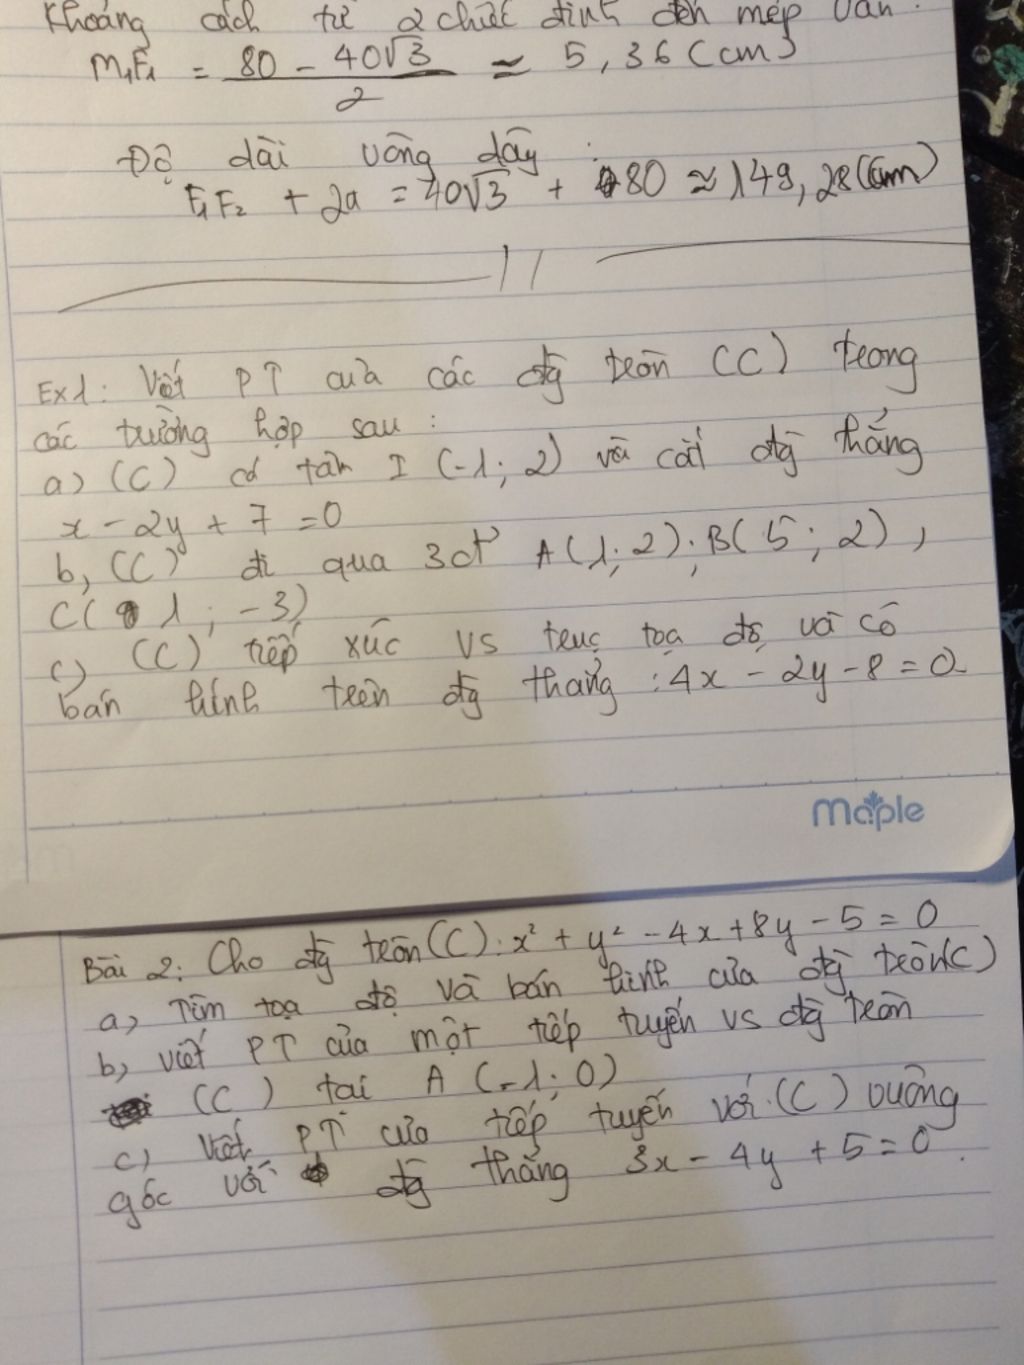 Khoảng cách từ 2 chiếc đinh đến mép ván.
M₁F₁ = (80 - 40√3)/2 ≈ 5,36 (cm)
Độ dài vòng dây :
F₁F₂ + 2a = 40√3 + 80 ≈ 149,28 (cm)
Ex1: Viết PT của các đg tròn (C) trong
các trường hợp sau :
a) (C) có tân I (-1; 2) và cắt đg thẳng
x - 2y + 7 = 0
b, (C) đi qua 3đ' A(1; 2); B(5; 2),
C(1; -3)
c) (C) tiếp xúc vs trục tọa độ và có
bán kính trên đg thẳng : 4x - 2y - 8 = 0
maple
Bài 2: Cho đg tròn (C): x² + y² - 4x + 8y - 5 = 0
a, Tìm tọa độ và bán kính của đg tròn(C)
b, viết PT của một tiếp tuyến vs đg tròn
(C) tại A (-1; 0)
c) Viết PT của tiếp tuyến với (C) vuông
góc với đg thẳng 3x - 4y + 5 = 0.